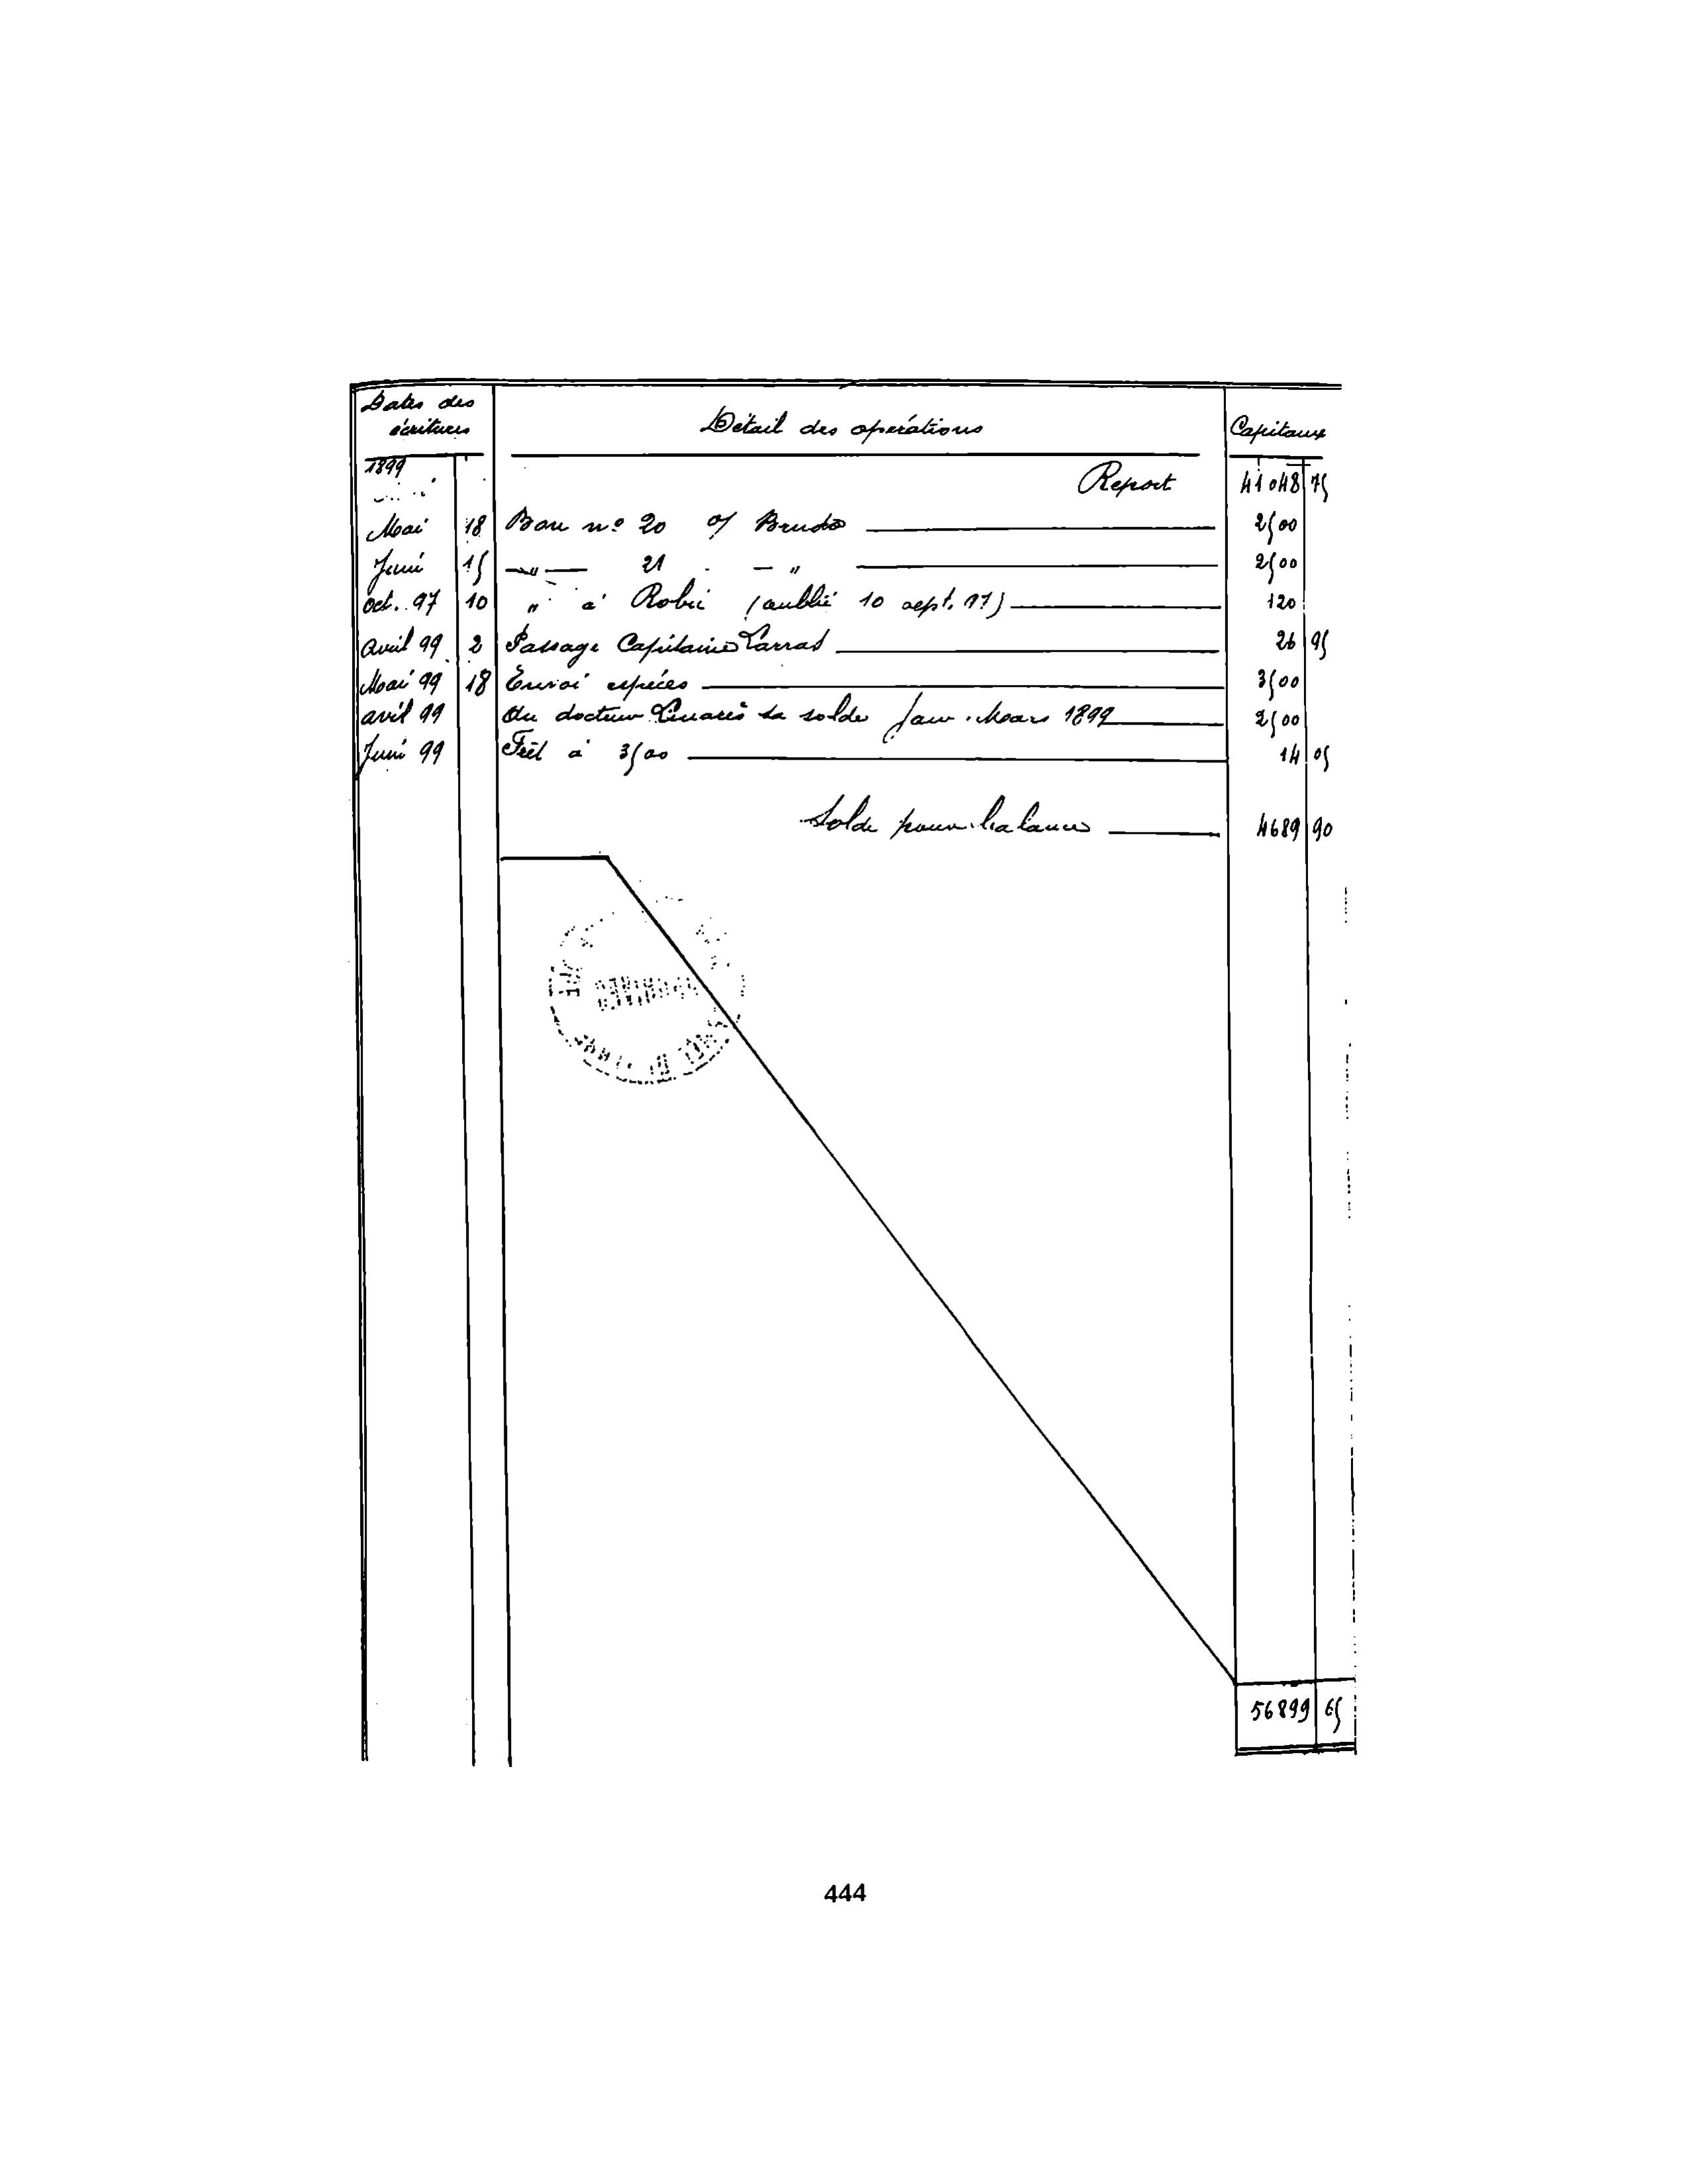 Dates des écritures Détail des opérations Capitaux
1899 Report 41048 75
Mai 18 Bon nº 20 o/ Brudo 2500
Juin 15 —"— 21 — " 2500
oct. 97 10 " à Robic (oublié 10 sept. 97) 120
avril 99 2 Passage Capitaine Larras 26 95
Mai 99 18 Envoi espèces 3500
avril 99 Au docteur Linarès sa solde Janv. Mars 1899 2500
Juin 99 Frêt à 3500 14 05
Solde pour balance 4689 90
56899 65
444